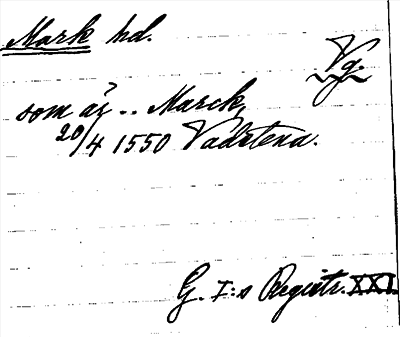 Mark hd.
Vg.
som är .. Marck,
20/4 1550 Vadstena.
G. I:s Registr. XXI.